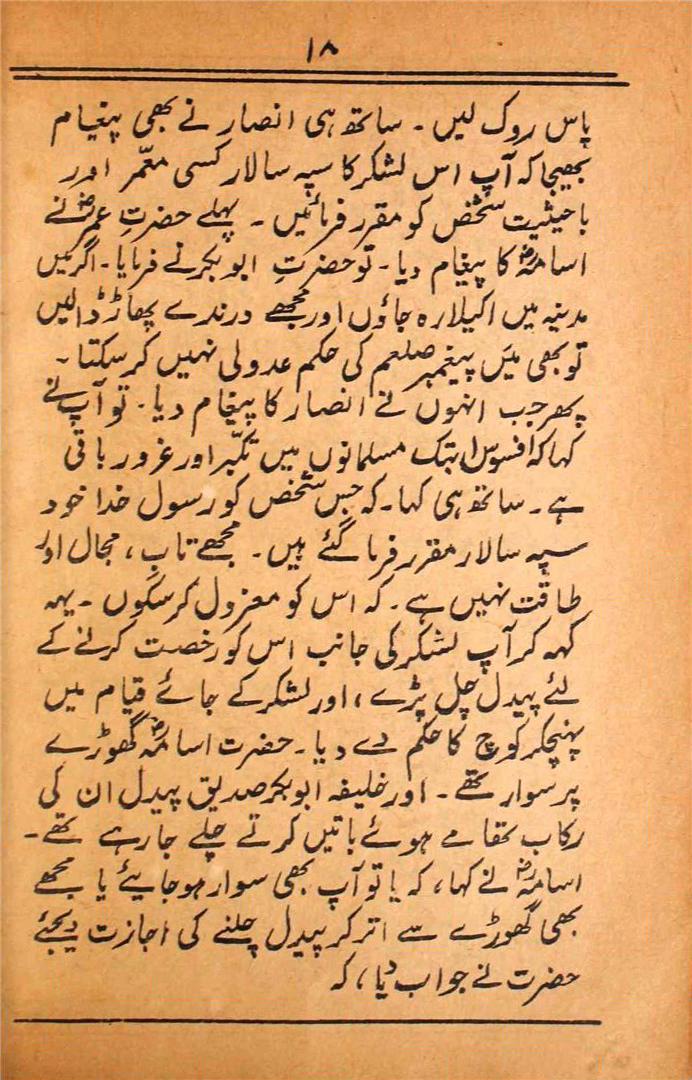 ۱۸
پاس روک لیں ۔ ساتھ ہی انصار نے بھی پیغام
بھیجا کہ آپ اس لشکر کا سپہ سالار کسی معمّر اور
باحیثیت شخص کو مقرر فرمائیں ۔ پہلے حضرتِ عمرؓ نے
اسامہؓ کا پیغام دیا ۔ تو حضرتِ ابوبکر نے فرمایا ۔ اگر میں
مدینہ میں اکیلا رہ جاؤں اور مجھے درندے پھاڑ ڈالیں
تو بھی میَں پیغمبر صلعم کی حکم عدولی نہیں کر سکتا ۔
پھر جب انہوں نے انصار کا پیغام دیا ۔ تو آپ نے
کہا کہ افسوس ابتک مسلمانوں میں تکبّر اور غرور باقی
ہے ۔ ساتھ ہی کہا ۔ کہ جس شخص کو رسول خدا خود
سپہ سالار مقرر فرما گئے ہیں ۔ مجھے تابِ ، مجال اور
طاقت نہیں ہے ۔ کہ اس کو معزول کر سکوں ۔ یہہ
کہہ کر آپ لشکر کی جانب اس کو رخصت کرنے کے
لئے پیدل چل پڑے ، اور لشکر کے جائے قیام میں
پہنچکر کوچ کا حکم دے دیا ۔ حضرت اسامہؓ گھوڑے
پر سوار تھے ۔ اور خلیفہ ابوبکر صدیق پیدل ان کی
رکاب تھامے ہوئے باتیں کرتے چلے جا رہے تھے ۔
اسامہؓ نے کہا ، کہ یا تو آپ بھی سوار ہو جایئے یا مجھے
بھی گھوڑے سے اتر کر پیدل چلنے کی اجازت دیجئے
حضرت نے جواب دیا ، کہ